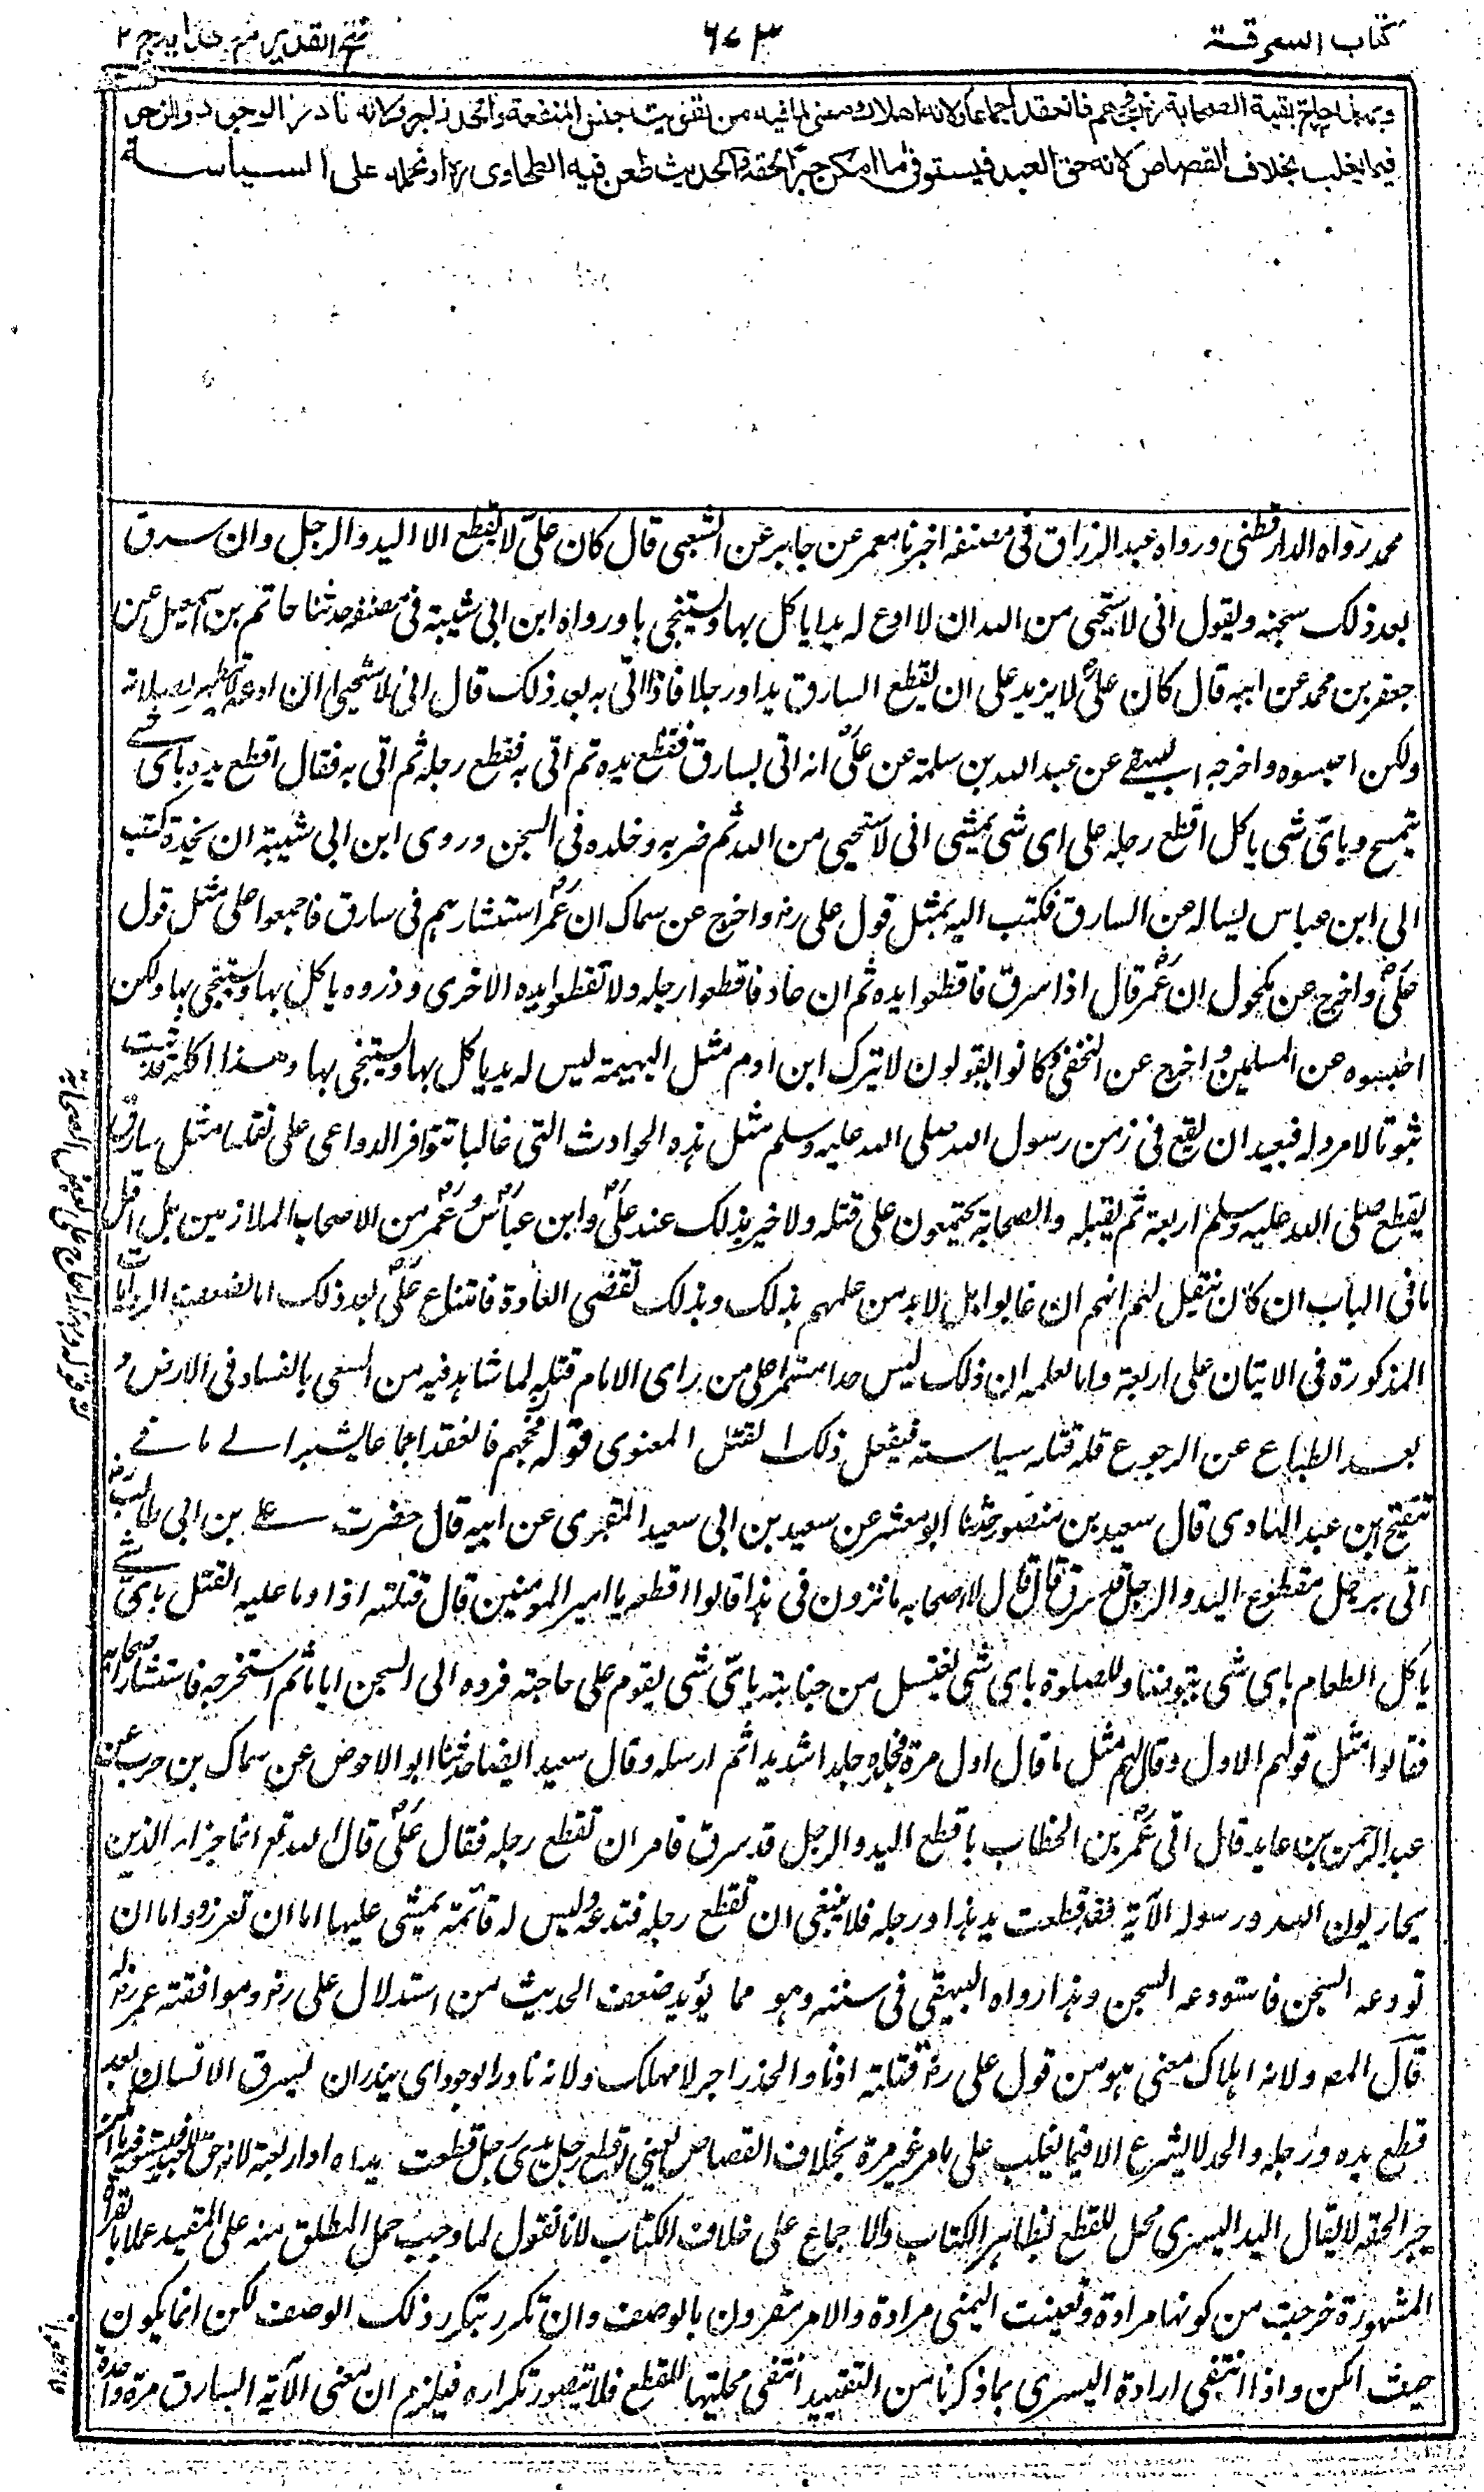 كتاب السرقة
٦٧٣
فتح القدير مع هداية ج ٢
وبهذا حاج بقية الصحابة رض فحجهم فانعقد اجماعا ولانه اهلاك معنى لما فيه من تفويت جنس المنفعة والحد زاجر ولانه نادر الوجود والزجر
فيما يغلب بخلاف القصاص لانه حق العبد فيستوفى ما امكن جبرا لحقه والحديث طعن فيه الطحاوى ره او نحمله على السياسة
محمد رواه الدارقطنى ورواه عبد الرزاق فى مصنفه اخبرنا معمر عن جابر عن الشعبى قال كان على لا يقطع الا اليد والرجل وان سرق
بعد ذلك سجنه ويقول انى لاستحيى من الله ان لا ادع له يدا ياكل بها ويستنجى بها ورواه ابن ابى شيبة فى مصنفه حدثنا حاتم بن اسمعيل عن
جعفر بن محمد عن ابيه قال كان على لا يزيد على ان يقطع السارق يدا ورجلا فاذا اتى به بعد ذلك قال انى لاستحيى ان ادعه لا يتطهر لصلاته
ولكن احبسوه واخرجه البيهقى عن عبد الله بن سلمة عن على انه اتى بسارق فقطع يده ثم اتى به فقطع رجله ثم اتى به فقال اقطع يده باى شئ
يتمسح وباى شى ياكل اقطع رجله على اى شى يمشى انى لاستحيى من الله ثم ضربه وخلده فى السجن وروى ابن ابى شيبة ان نجدة كتب
الى ابن عباس يساله عن السارق فكتب اليه بمثل قول على رض واخرج عن سماك ان عمر استشارهم فى سارق فاجمعوا على مثل قول
على واخرج عن مكحول ان عمر قال اذا سرق فاقطعوا يده ثم ان عاد فاقطعوا رجله ولا تقطعوا يده الاخرى وذروه ياكل بها ويستنجى بها ولكن
احبسوه عن المسلمين واخرج عن النخعى كانوا يقولون لا يترك ابن ادم مثل البهيمة ليس له يد ياكل بها ويستنجى بها وهذا كله قد ثبت
ثبوتا لا مرد له فبعيد ان يقع فى زمن رسول الله صلى الله عليه وسلم مثل هذه الحوادث التى غالبا تتوافر الدواعى على نقلها مثل سارق
يقطع صلى الله عليه وسلم اربعة ثم يقتله والصحابة يجتمعون على قتله ولا خبر بذلك عند على وابن عباس وعمر من الاصحاب الملازمين بل اقل
ما فى الباب ان كان ينقل لهم انهم ان غابوا بل لا بد من علمهم بذلك وبذلك تقضى العادة فامتناع على بعد ذلك اما لضعف الروايات
المذكورة فى الاتيان على اربعة واما لعلمه ان ذلك ليس حدا مستمرا بل من راى الامام قتله لما شاهد فيه من السعى بالفساد فى الارض و
بعد الطباع عن الرجوع فله قتله سياسة فيفعل ذلك القتل المعنوى قوله فحجهم فانعقد اجماعا يشير الى ما فى
تنقيح ابن عبد الهادى قال سعيد بن منصور حدثنا ابو معشر عن سعيد بن ابى سعيد المقبرى عن ابيه قال حضرت على بن ابى طالب رض
اتى برجل مقطوع اليد والرجل قد سرق فقال لاصحابه ما ترون فى هذا قالوا اقطعه يا امير المومنين قال قتلته اذا وما عليه القتل باى شئ
ياكل الطعام باى شى يتوضا للصلوة باى شى يغتسل من جنابته باى شى يقوم على حاجته فرده الى السجن اياما ثم استخرجه فاستشار اصحابه
فقالوا مثل قولهم الاول وقال لهم مثل ما قال اول مرة فجلده جلدا شديدا ثم ارسله وقال سعيد ايضا حدثنا ابو الاحوص عن سماك بن حرب عن
عبد الرحمن بن عايد قال اتى عمر بن الخطاب باقطع اليد والرجل قد سرق فامر ان تقطع رجله فقال على قال الله تع انما جزاء الذين
يحاربون الله ورسوله الآية فقد قطعت يد هذا ورجله فلا ينبغى ان تقطع رجله فتدعه وليس له قائمة يمشى عليها اما ان تعزره واما ان
تودعه السجن فاستودعه السجن وهذا رواه البيهقى فى سننه وهو مما يؤيد ضعف الحديث من استدلال على رض وموافقته عمر رض له
قال المص ولانه اهلاك معنى هو من قول على رض قتلته اذا والحد زاجر لا مهلك ولانه نادر الوجود اى يندر ان يسرق الانسان بعد
قطع يده ورجله والحد لا يشرع الا فيما يغلب على ما مر غير مرة بخلاف القصاص يعنى لو قطع رجل يسرى رجل قطعت يداه او اربعته لانه حق العبد فيستوفيه ما امكن
جبر الحقه لا يقال اليد اليسرى محل للقطع بظاهر الكتاب ولا اجماع على خلاف الكتاب لانا نقول لما وجب حمل المطلق منه على المقيد عملا بالقراءة
المشهورة خرجت من كونها مرادة وتعينت اليمنى مرادة والامر المقرون بالوصف وان تكرر بتكرر ذلك الوصف لكن انما يكون
حيث امكن واذا انتفى ارادة اليسرى بما ذكرنا من التقييد انتفى محليتها للقطع فلا يتصور تكراره فيلزم ان معنى الآية السارق مرة واحدة